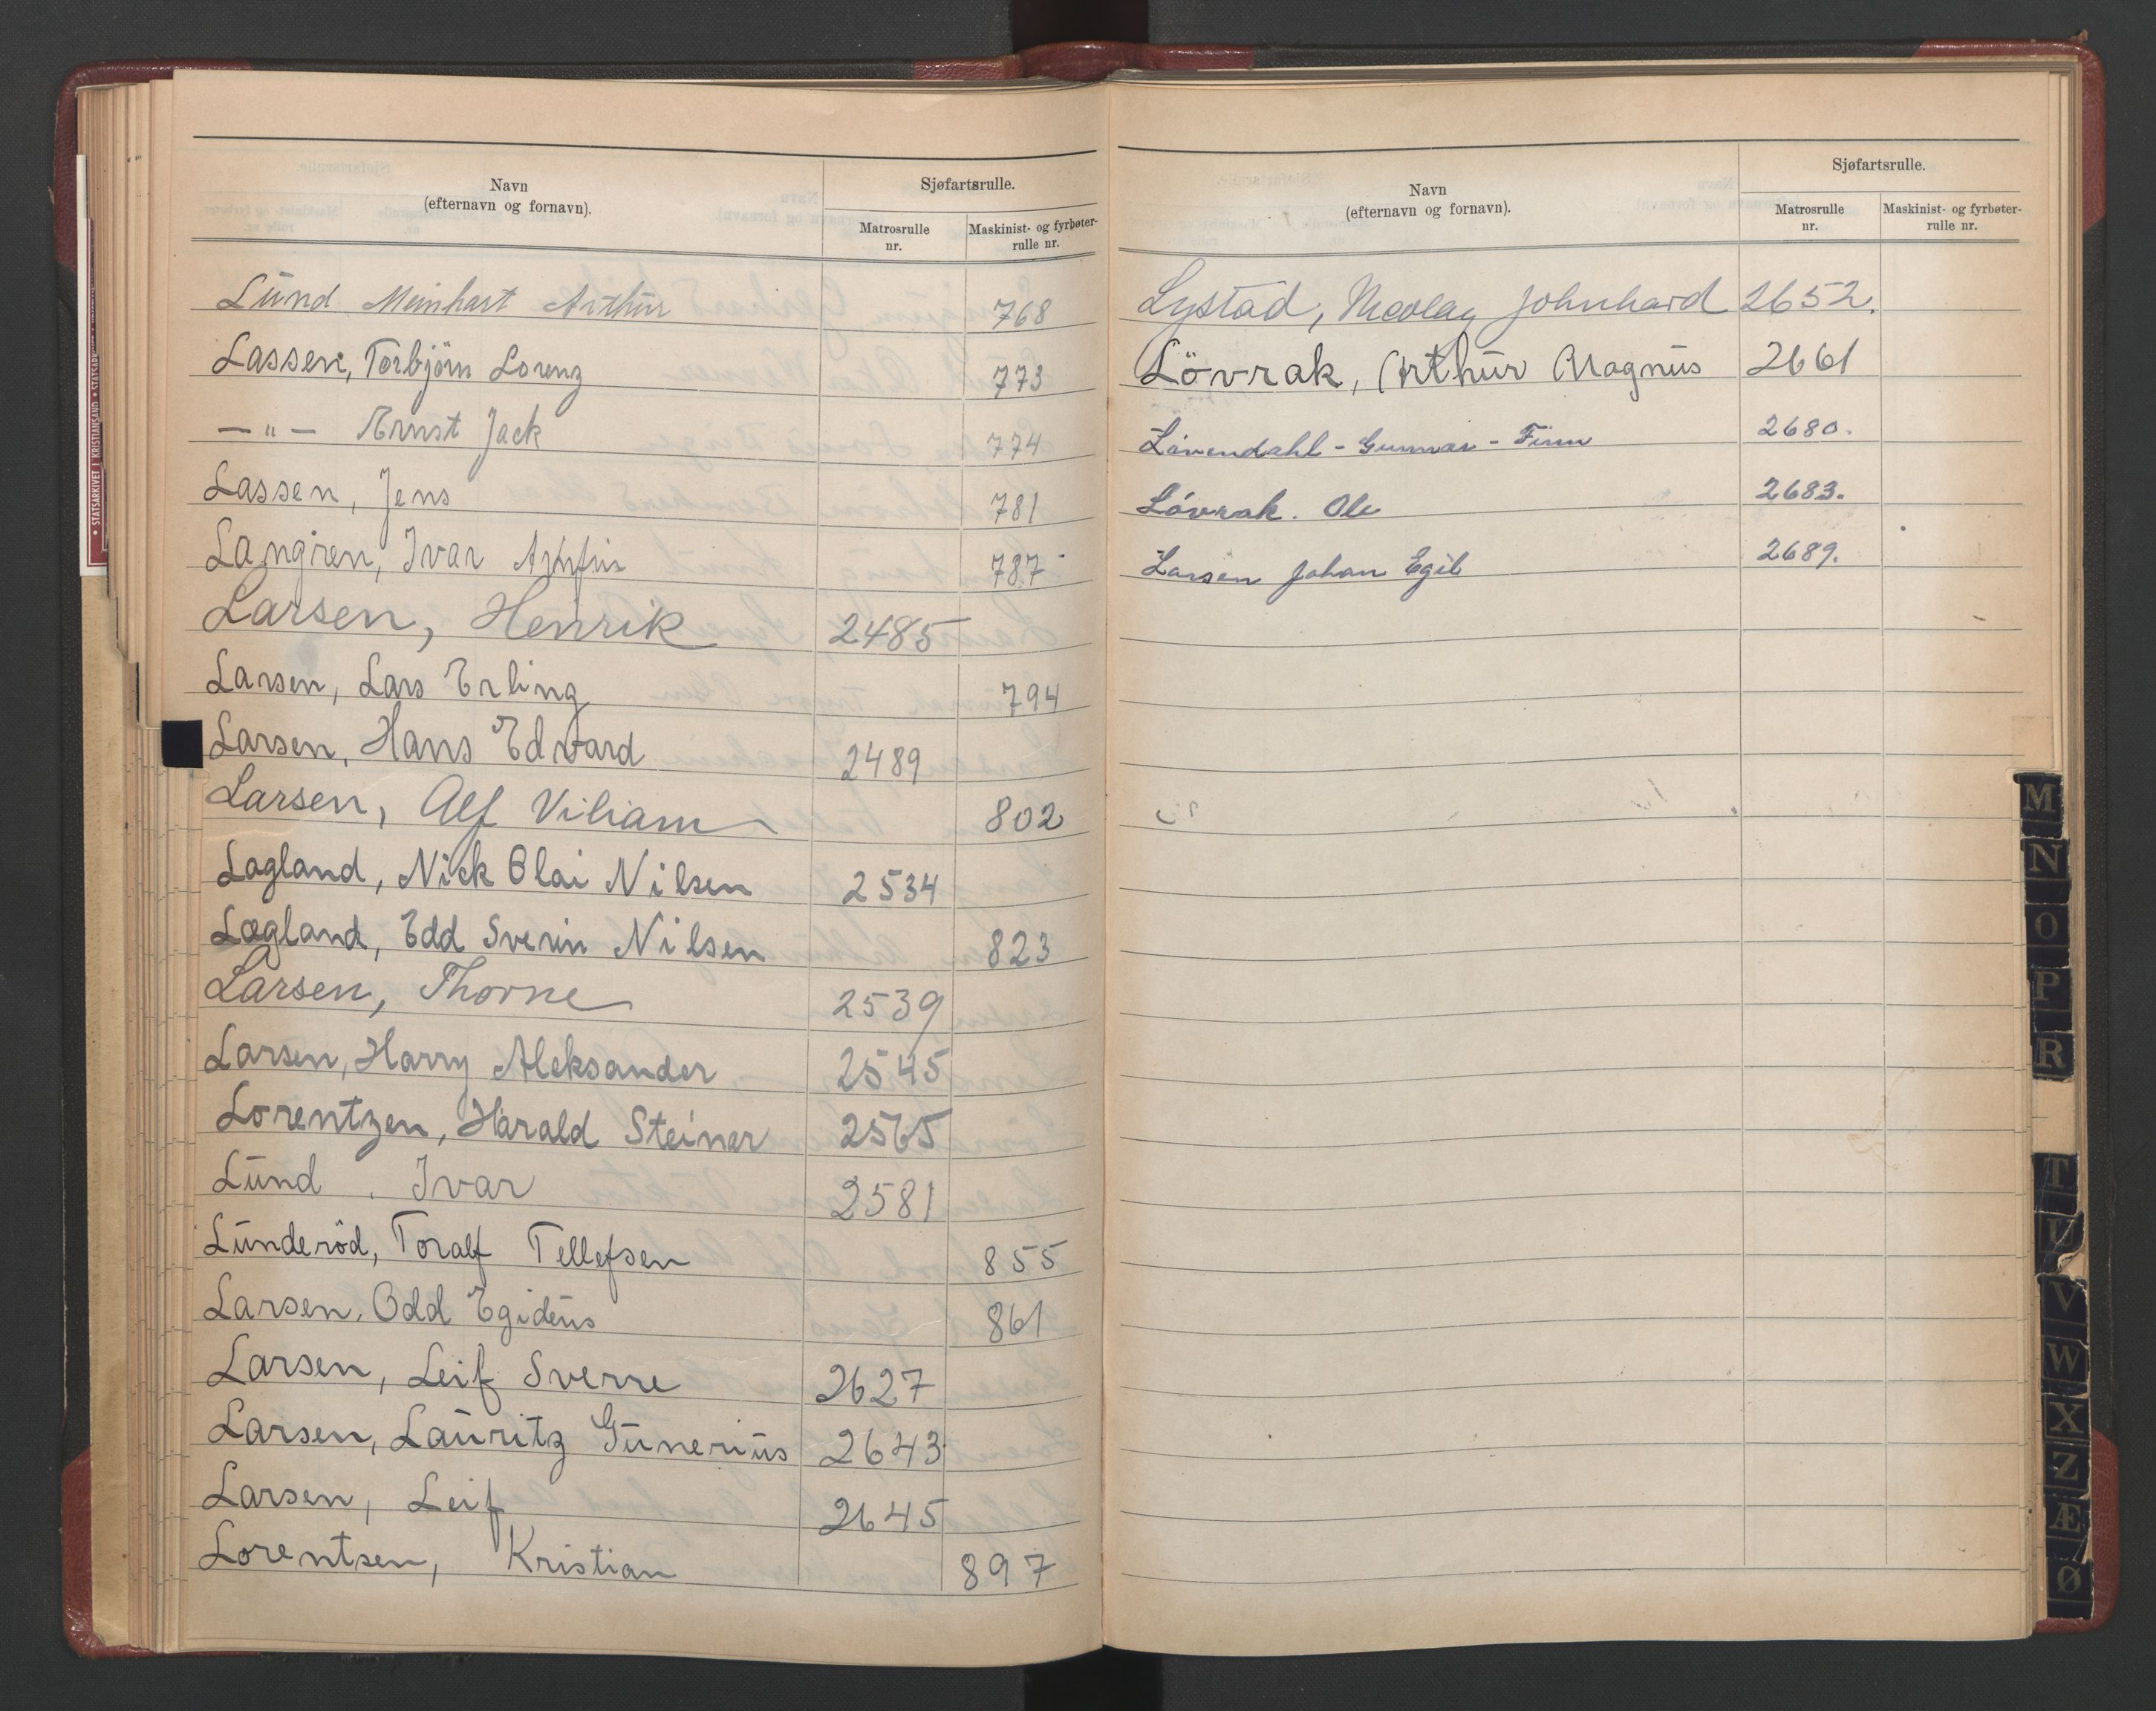 Navn
(efternavn og fornavn).
Sjøfartsrulle.
Matrosrulle
nr.
Maskinist- og fyrbøter-
rulle nr.
Lund Meinhart Arthur 768
Lassen, Torbjörn Lorenz 773
— " — Ernst Jack 774
Lassen, Jens 781
Langren, Ivar Arnfin 787
Larsen, Henrik 2485
Larsen, Lars Erling 794
Larsen, Hans Edvard 2489
Larsen, Alf Viliam 802
Lagland, Nick Olai Nilsen 2534
Lagland, Edd Sverin Nilsen 823
Larsen, Thorne 2539
Larsen, Harry Aleksander 2545
Lorentzen, Harald Steiner 2565
Lund, Ivar 2581
Lunderöd, Toralf Tellefsen 855
Larsen, Odd Egideus 861
Larsen, Leif Sverre 2627
Larsen, Lauritz Gunerius 2643
Larsen, Leif 2645
Lorentsen, Kristian 897
Navn
(efternavn og fornavn).
Sjøfartsrulle.
Matrosrulle
nr.
Maskinist- og fyrbøter-
rulle nr.
Lystad, Nicolay Johnhard 2652.
Lövrak, Arthur Magnus 2661
Lövendahl - Gunnar - Finn 2680.
Lövrak. Ole 2683.
Larsen Johan Egil 2689.
M
N
O
P
R
T
U
V
W
X
Z
Æ
Ø
STATSARKIVET I KRISTIANSAND